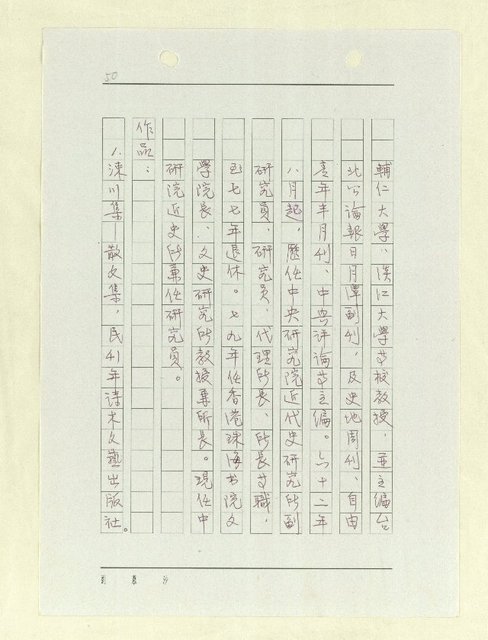 50
輔仁大學、漢仁大學等校教授,並主編台
北公論報日月潭副刊,及史地周刊、自由
青年半月刊、中央評論等主編。六十二年
八月起,歷任中央研究院近代史研究所副
研究員、研究員、代理所長、所長等職,
至七七年退休。七九年任香港珠海書院文
學院長、文史研究所教授兼所長。現任中
研院近史所兼任研究員。
作品:
1、涑川集—散文集,民41年詩木文藝出版社。